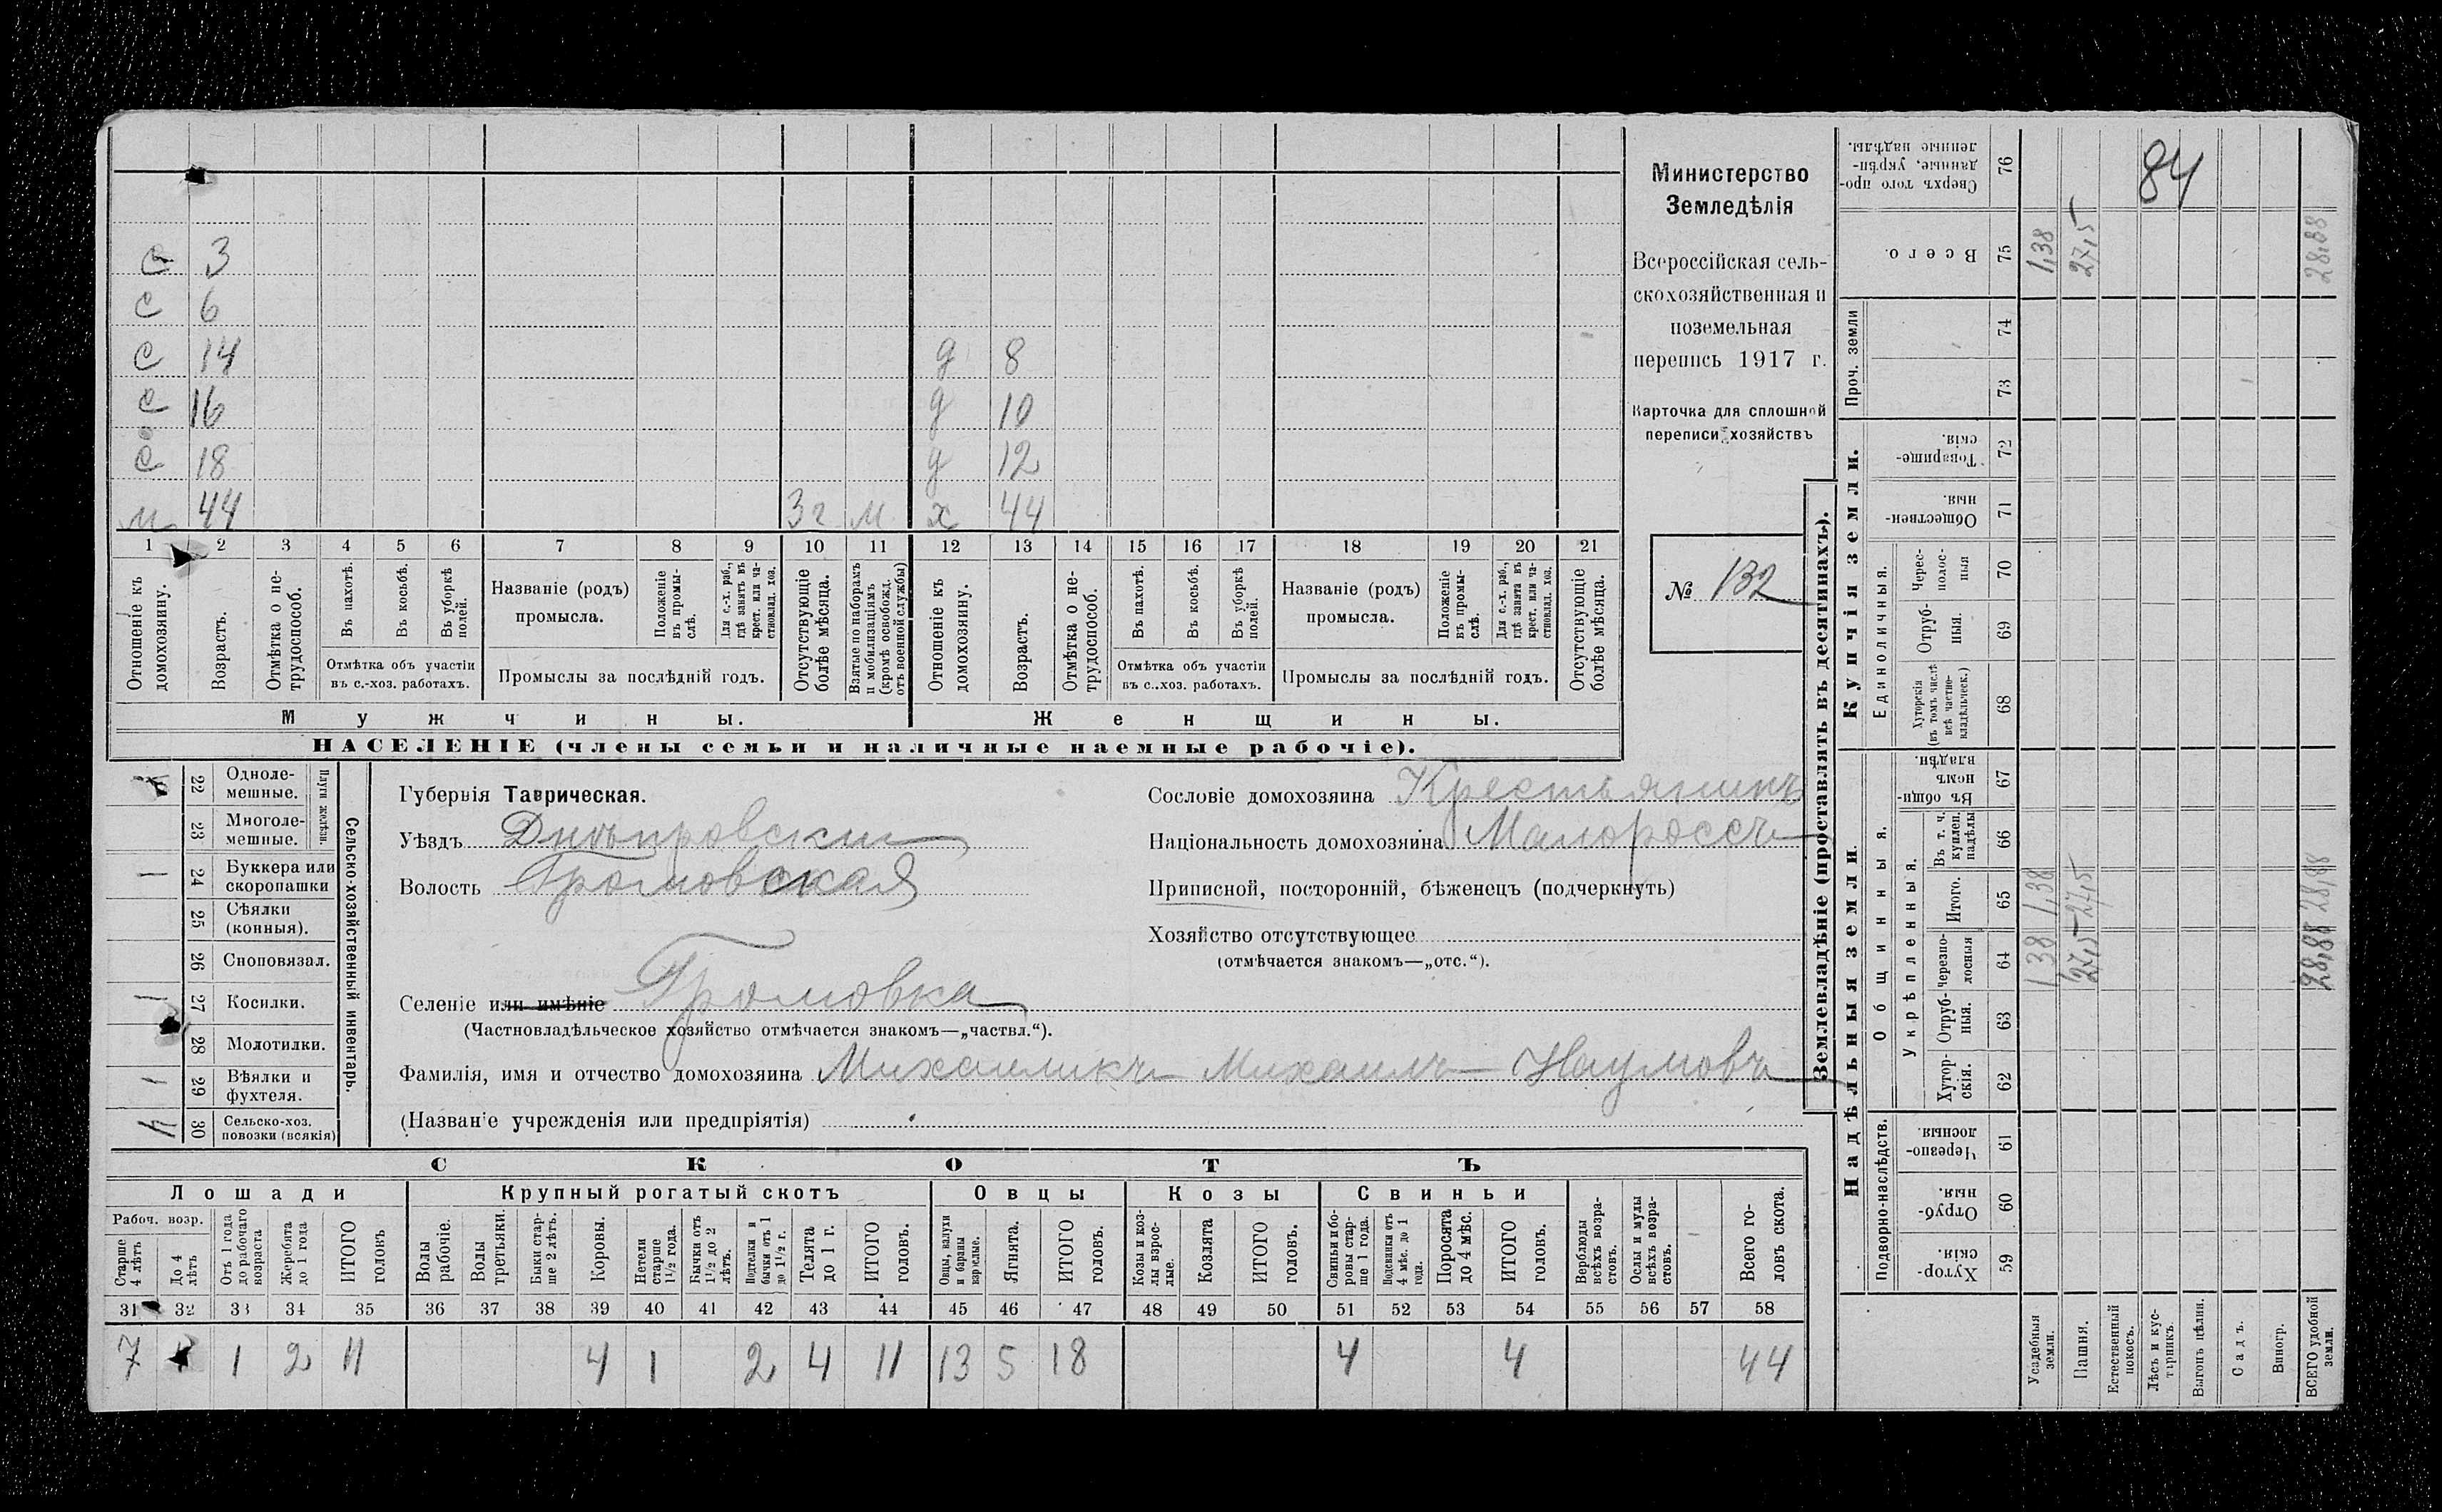 с 3
с 6
с 14 д 8
с 16 д 10
с 18 д 12
м 44 3 г м х 44
1 2 3 4 5 6 7 8 9 10 11 12 13 14 15 16 17 18 19 20 21
Отношеніе къ домохозяину.
Возрастъ.
Отмѣтка о не-трудоспособ.
Въ пахотѣ.
Въ косьбѣ.
Въ уборкѣ полей.
Отмѣтка объ участіи
въ с.-хоз. работахъ.
Названіе (родъ)
промысла.
Положеніе въ промы-слѣ.
Для с.-х. раб., гдѣ занятъ въ крест. или ча-стновлад. хоз.
Промыслы за послѣдній годъ.
Отсутствующіе болѣе мѣсяца.
Взятые по наборамъ и мобилизаціямъ (кромѣ освобожд. отъ военной службы)
Отношеніе къ домохозяину.
Возрастъ.
Отмѣтка о не-трудоспособ.
Въ пахотѣ.
Въ косьбѣ.
Въ уборкѣ полей.
Отмѣтка объ участіи
въ с..хоз. работахъ.
Названіе (родъ)
промысла.
Положеніе въ промы-слѣ.
Для с.-х. раб., гдѣ занята въ крест. или ча-стновлад. хоз.
Промыслы за послѣдній годъ.
Отсутствующіе болѣе мѣсяца.
Мужчины.
Женщины.
НАСЕЛЕНІЕ (члены семьи и наличные наемные рабочіе).
Министерство
Земледѣлія
Всероссійская сель-
скохозяйственная и
поземельная
перепись 1917 г.
Карточка для сплошной
переписи хозяйствъ
№ 132
Сельско-хозяйственный инвентарь.
Плуги желѣзн.
22 Одноле-мешные.
23 Многоле-мешные.
1 24 Буккера или скоропашки
25 Сѣялки (конныя).
26 Сноповязал.
1 27 Косилки.
28 Молотилки.
1 29 Вѣялки и фухтеля.
30 Сельско-хоз. повозки (всякія)
Губернія Таврическая.
Уѣздъ Днѣпровскій
Волость Громовская
Селеніе или имѣніе Громовка
(Частновладѣльческое хозяйство отмѣчается знакомъ—„частвл.“).
Фамилія, имя и отчество домохозяина Михайликъ Михаилъ Наумовъ
(Названіе учрежденія или предпріятія)
Сословіе домохозяина Крестьянинъ
Національность домохозяина Малороссъ
Приписной, посторонній, бѣженецъ (подчеркнуть)
Хозяйство отсутствующее
(отмѣчается знакомъ—„отс.“).
СКОТЪ
Лошади
Крупный рогатый скотъ
Овцы
Козы
Свиньи
Рабоч. возр.
Старше 4 лѣтъ
До 4 лѣтъ
Отъ 1 года до рабочаго возраста
Жеребята до 1 года
ИТОГО головъ
Волы рабочіе.
Волы третьяки.
Быки стар-ше 2 лѣтъ.
Коровы.
Нетели старше 1½ года.
Бычки отъ 1½ до 2 лѣтъ.
Подтелки и бычки отъ 1 до 1½ г.
Телята до 1 г.
ИТОГО головъ.
Овцы, валухи и бараны взрослые.
Ягнята.
ИТОГО головъ.
Козы и коз-лы взрос-лые.
Козлята
ИТОГО головъ.
Свиньи и бо-ровы стар-ше 1 года.
Подсвинки отъ 4 мѣс. до 1 года.
Поросята до 4 мѣс.
ИТОГО головъ.
Верблюды всѣхъ возра-стовъ.
Ослы и мулы всѣхъ возра-стовъ.
Всего го-ловъ скота.
31 32 33 34 35 36 37 38 39 40 41 42 43 44 45 46 47 48 49 50 51 52 53 54 55 56 57 58
7 1 2 11 4 1 2 4 11 13 5 18 4 4 44
Землевладѣніе (проставлять въ десятинахъ).
Надѣльныя земли
Купчія земли.
Проч. земли
Подворно-наслѣдств.
Общинныя.
Укрѣпленныя.
Единоличныя.
Сверхъ того про-данные, укрѣп-ленные надѣлы. 76
Всего. 75
74
73
Товарище-скія. 72
Обществен-ныя. 71
Черес-полос-ныя 70
Отруб-ныя. 69
Хуторскія (въ томъ числѣ всѣ частно-владѣльческ.) 68
Въ общи-номъ владѣн. 67
Въ т. ч. куплен. надѣлы 66
Итого. 65
Черезпо-лосныя 64
Отруб-ныя. 63
Хутор-скія. 62
Черезпо-лосныя. 61
Отруб-ныя. 60
Хутор-скія. 59
84
Усадебныя земли. 1,38 1,38 1,38
Пашня. 27,5 27,5 27,5
Естественный покосъ.
Лѣсъ и кус-тарникъ.
Выгонъ цѣлин.
Садъ.
Виногр.
ВСЕГО удобной земли. 28,88 28,88 28,88